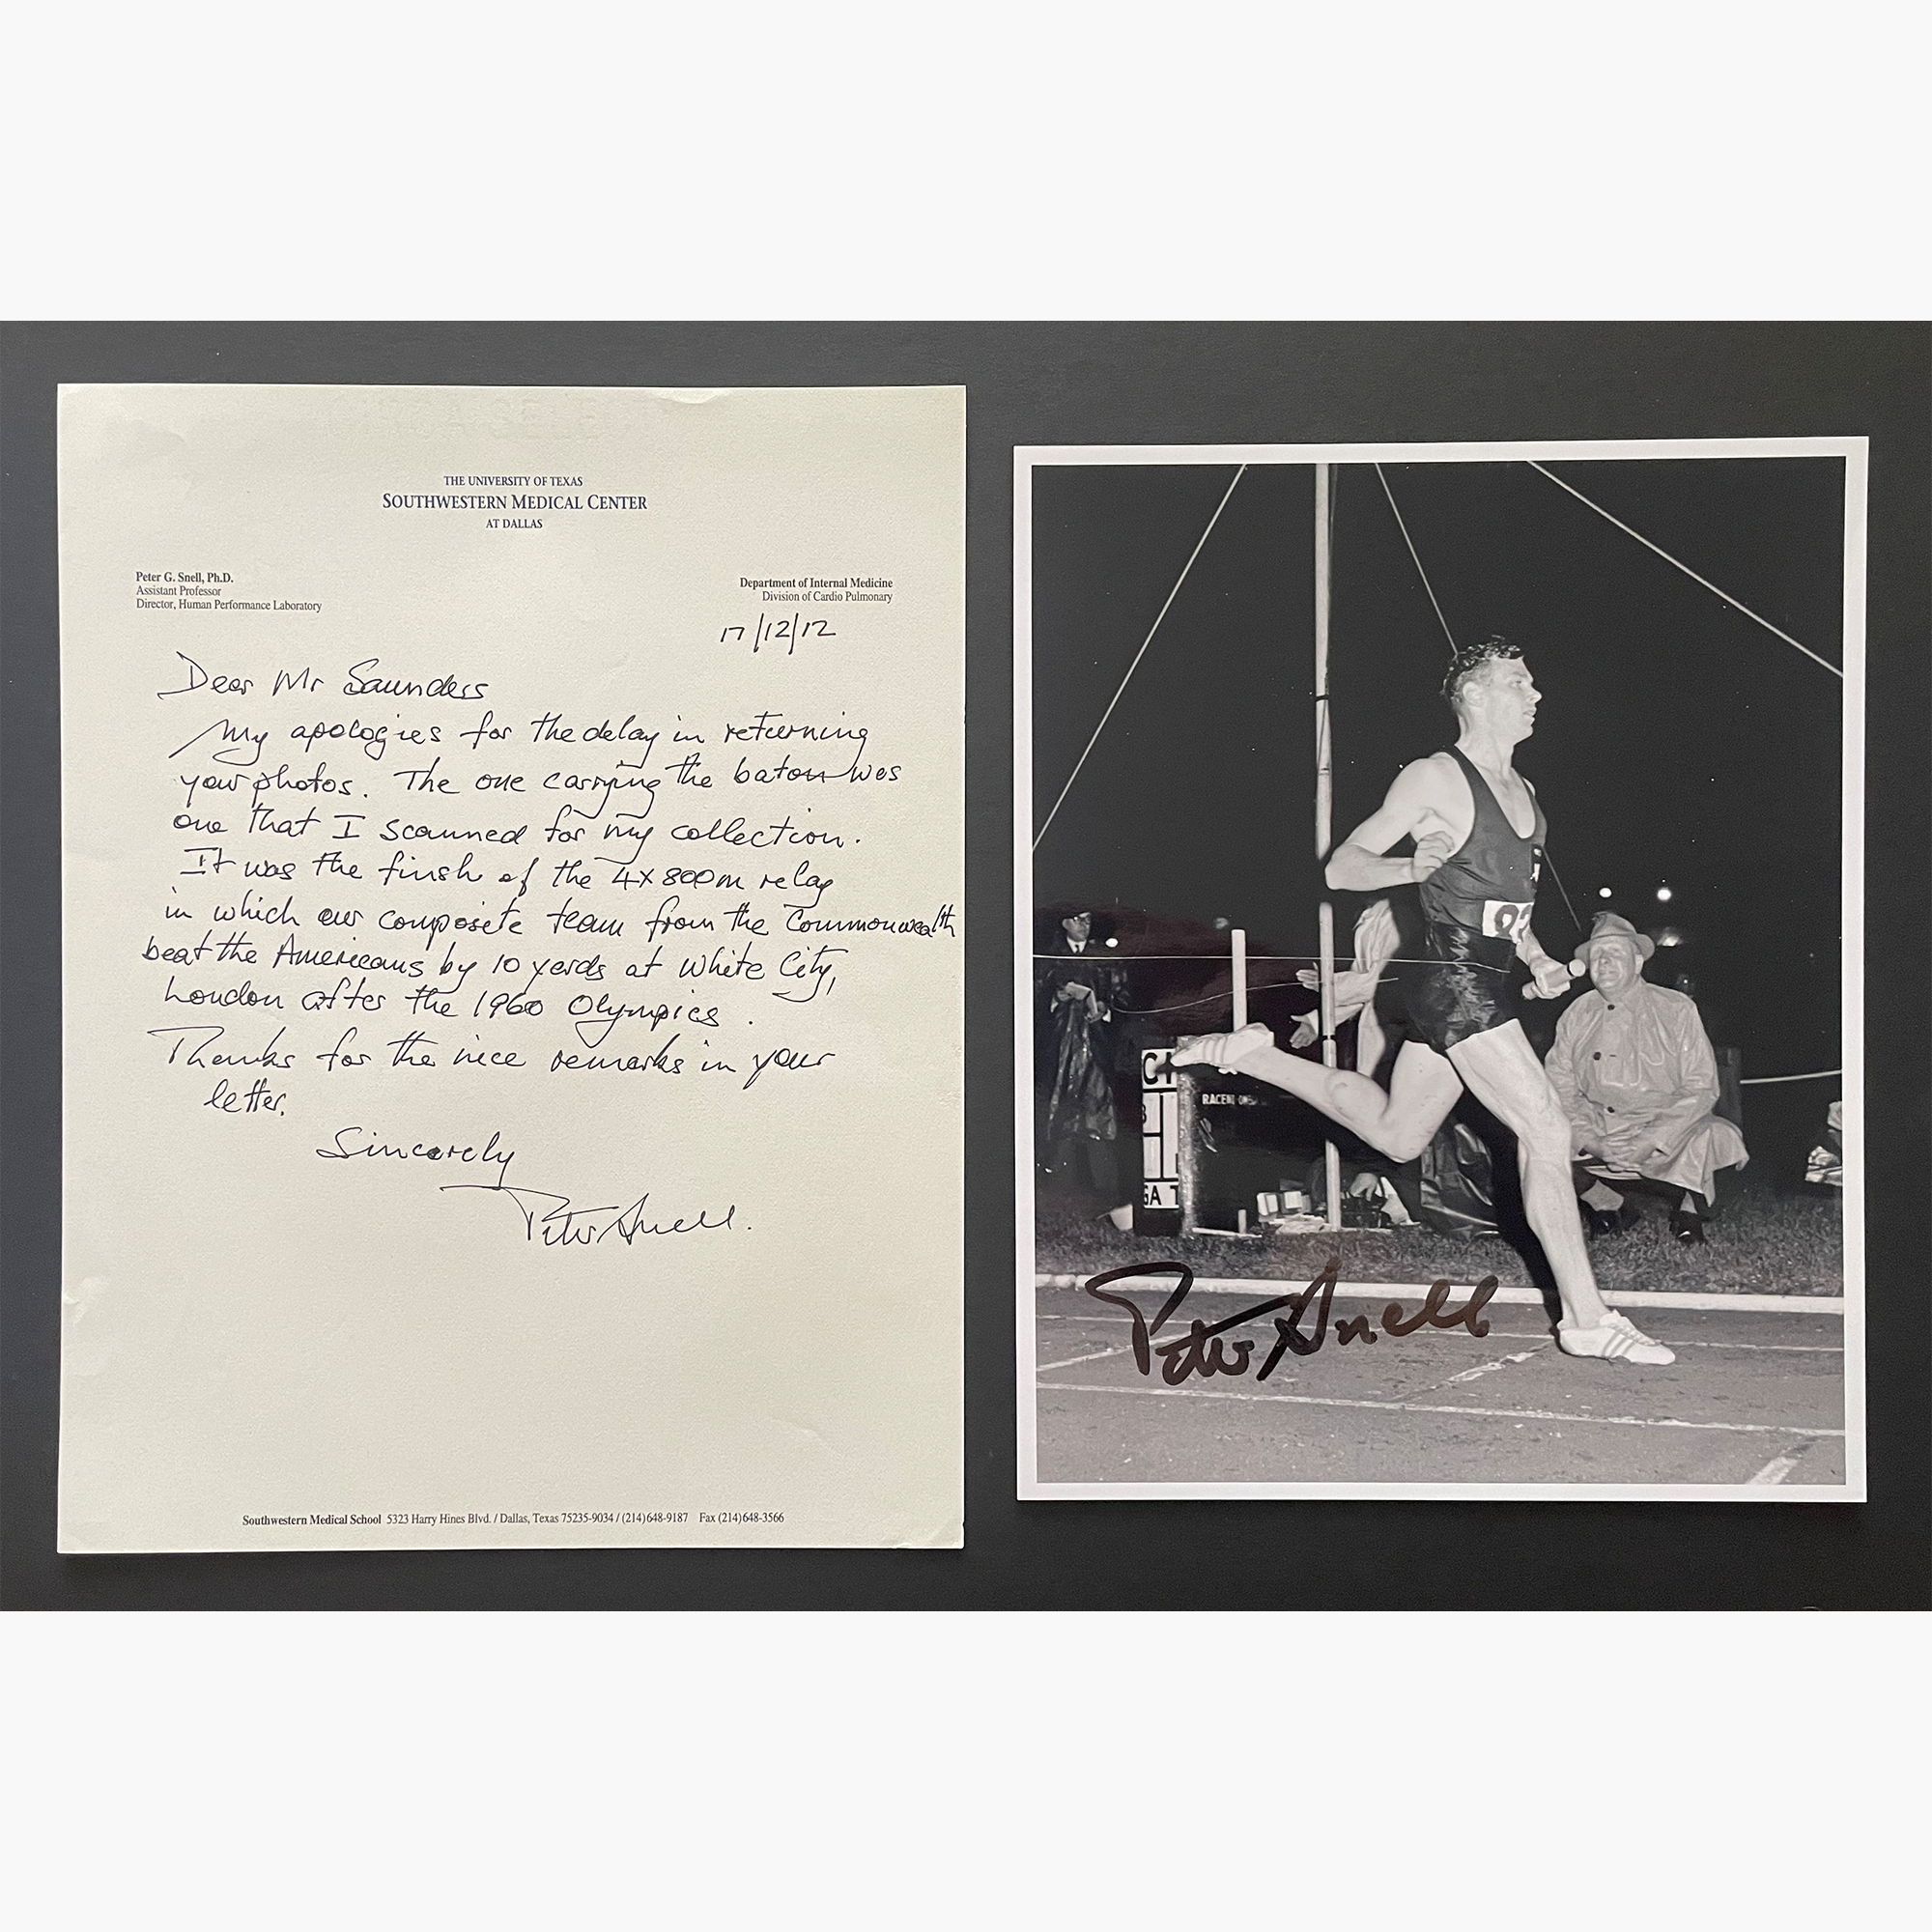 THE UNIVERSITY OF TEXAS
SOUTHWESTERN MEDICAL CENTER
AT DALLAS
Peter G. Snell, Ph.D.
Assistant Professor
Director, Human Performance Laboratory
Department of Internal Medicine
Division of Cardio Pulmonary
17/12/12
Dear Mr Saunders
My apologies for the delay in returning
your photos. The one carrying the baton was
one that I scanned for my collection.
It was the finish of the 4x800m relay
in which our composite team from the Commonwealth
beat the Americans by 10 yards at White City,
London after the 1960 Olympics.
Thanks for the nice remarks in your
letter.
Sincerely
Peter Snell.
Southwestern Medical School 5323 Harry Hines Blvd. / Dallas, Texas 75235-9034 / (214)648-9187 Fax (214)648-3566
GA T
Peter Snell